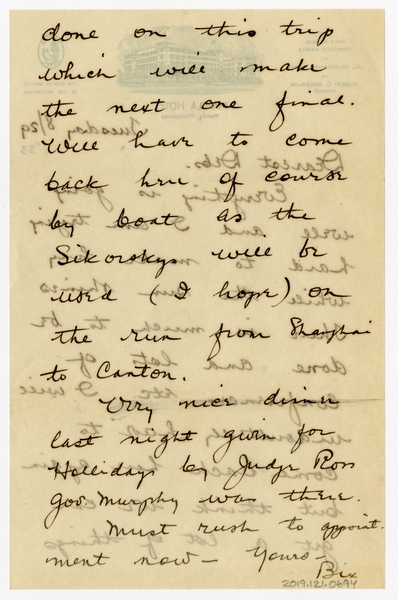 done on this trip
which will make
the next one final.
Will have to come
back here of course
by boat as the
Sikorskys will be
used (I hope) on
the run from Shanghai
to Canton.
Very nice dinner
last night givin for
Hollidays by Judge Ross
Gov. Murphy was there.
Must rush to appoint-
ment now - Yours -
Bix
2019.121.0694